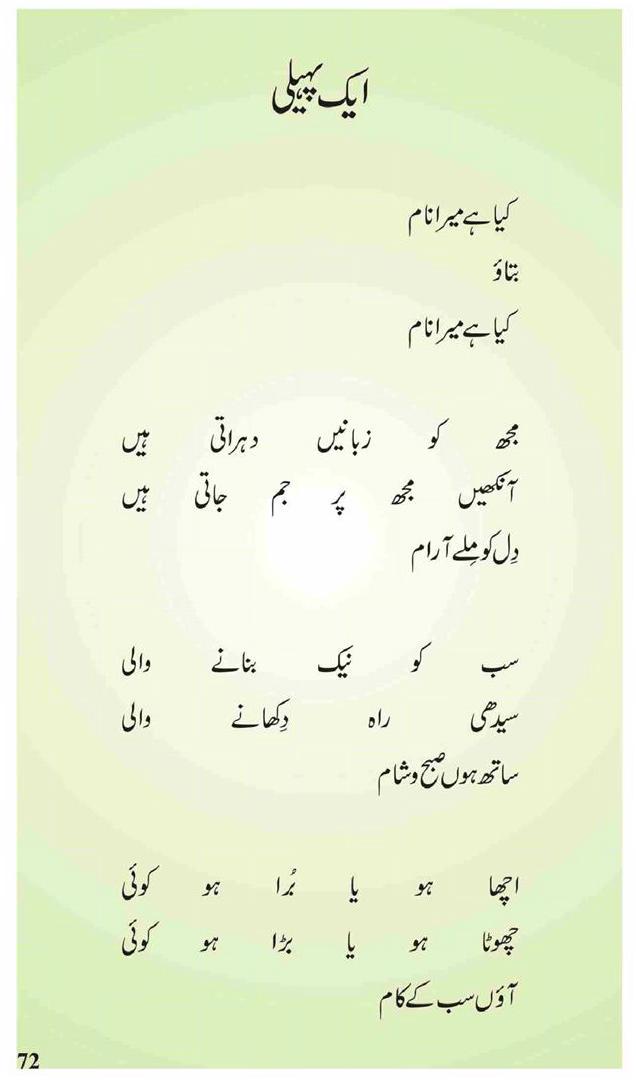 ایک پہیلی
کیا ہے میرا نام
بتاؤ
کیا ہے میرا نام
مجھ کو زبانیں دہراتی ہیں
آنکھیں مجھ پر جم جاتی ہیں
دِل کو مِلے آرام
سب کو نیک بنانے والی
سیدھی راہ دِکھانے والی
ساتھ ہوں صبح و شام
اچھا ہو یا بُرا ہو کوئی
چھوٹا ہو یا بڑا ہو کوئی
آؤں سب کے کام
72